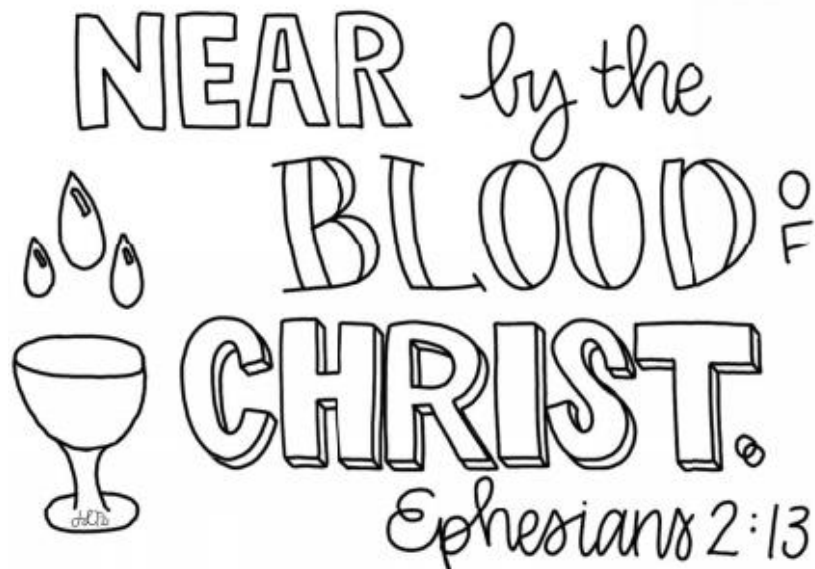 NEAR by the
BLOOD OF
CHRIST.
Ephesians 2:13